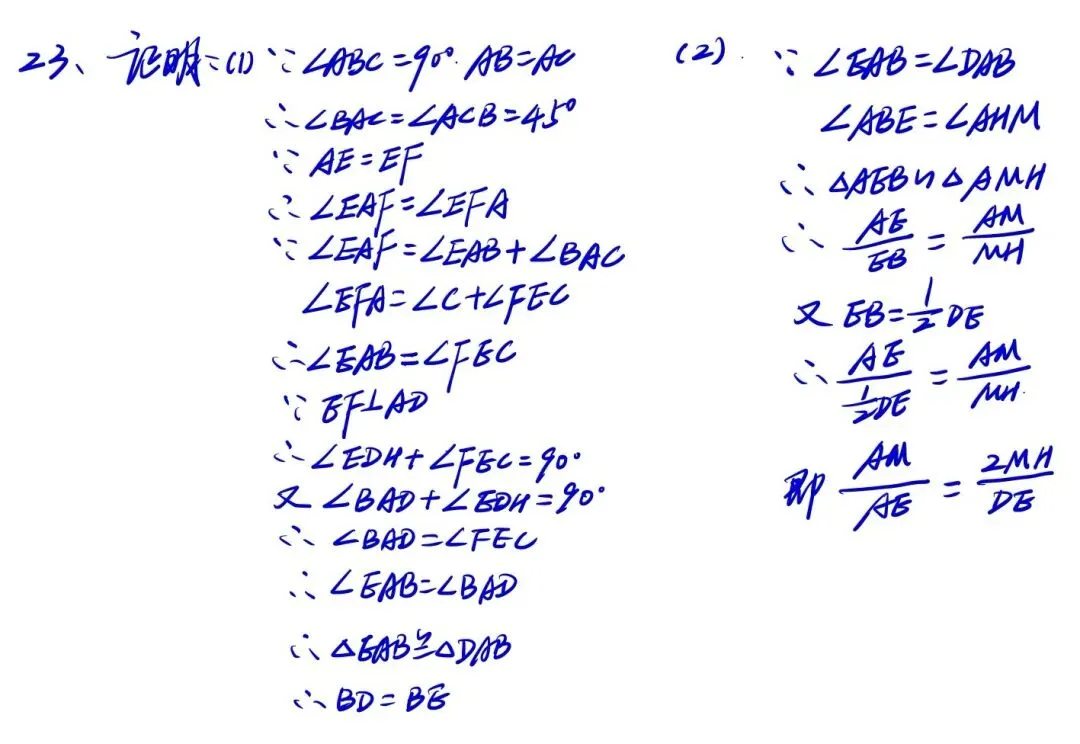 23、证明:(1) ∵∠ABC=90°. AB=AC
∴∠BAC=∠ACB=45°
∵ AE=EF
∴∠EAF=∠EFA
∵∠EAF=∠EAB+∠BAC
∠EFA=∠C+∠FEC
∴∠EAB=∠FEC
∵ EF⊥AD
∴∠EDH+∠FEC=90°
又∠BAD+∠EDH=90°
∴ ∠BAD=∠FEC
∴ ∠EAB=∠BAD
∴ △EAB≌△DAB
∴ BD=BE
(2). ∵ ∠EAB=∠DAB
∠ABE=∠AHM
∴ △AEB∽△AMH
∴ AE/EB = AM/MH
又 EB=1/2 DE
∴ AE/(1/2 DE) = AM/MH.
即 AM/AE = 2MH/DE